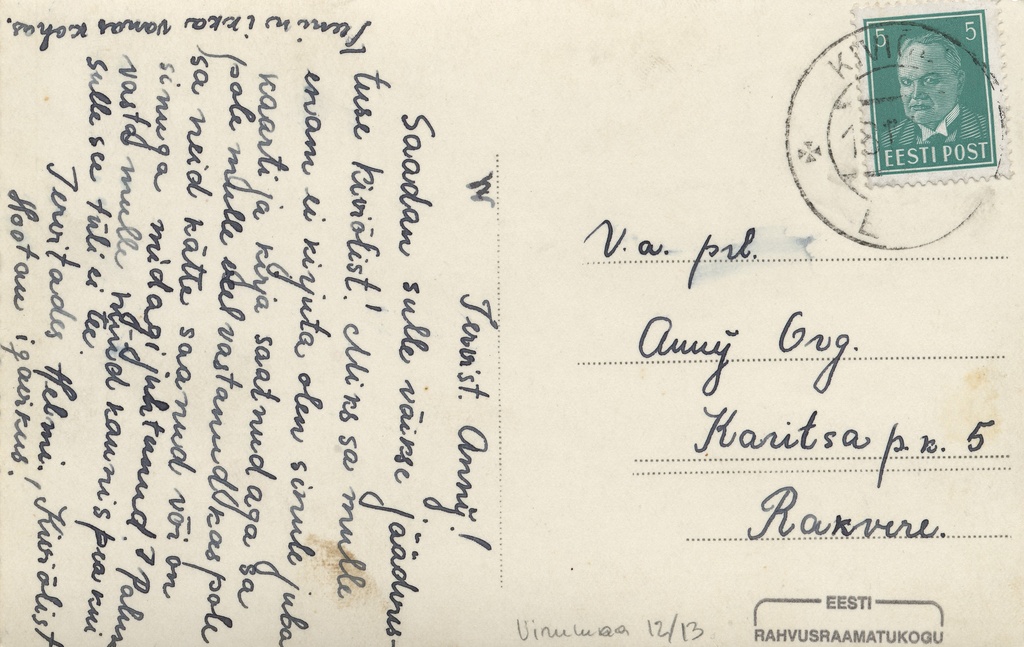 Tervist. Anny!
Saadan sulle väikse jäädvus-
tuse kiviõlist. Miks sa mulle
enam ei kirjuta olen sinule juba
kaarti ja kirja saatnud aga sa
pole mulle veel vastanud kas pole
sa neid kätte saanud või on
sinuga midagi juhtunud? Palun
vasta mulle nüüd kaunis pea kui
sulle see tüli ei tee.
Tervitades Helmi, Kiviõlist
Ootan igavikus!
Seni n ikka vanas kohas.
V.a. prl.
Anny Org.
Karitsa p.k. 5
Rakvere.
5 5
EESTI POST
KIVIÕLI
Virumaa 12/13
EESTI
RAHVUSRAAMATUKOGU